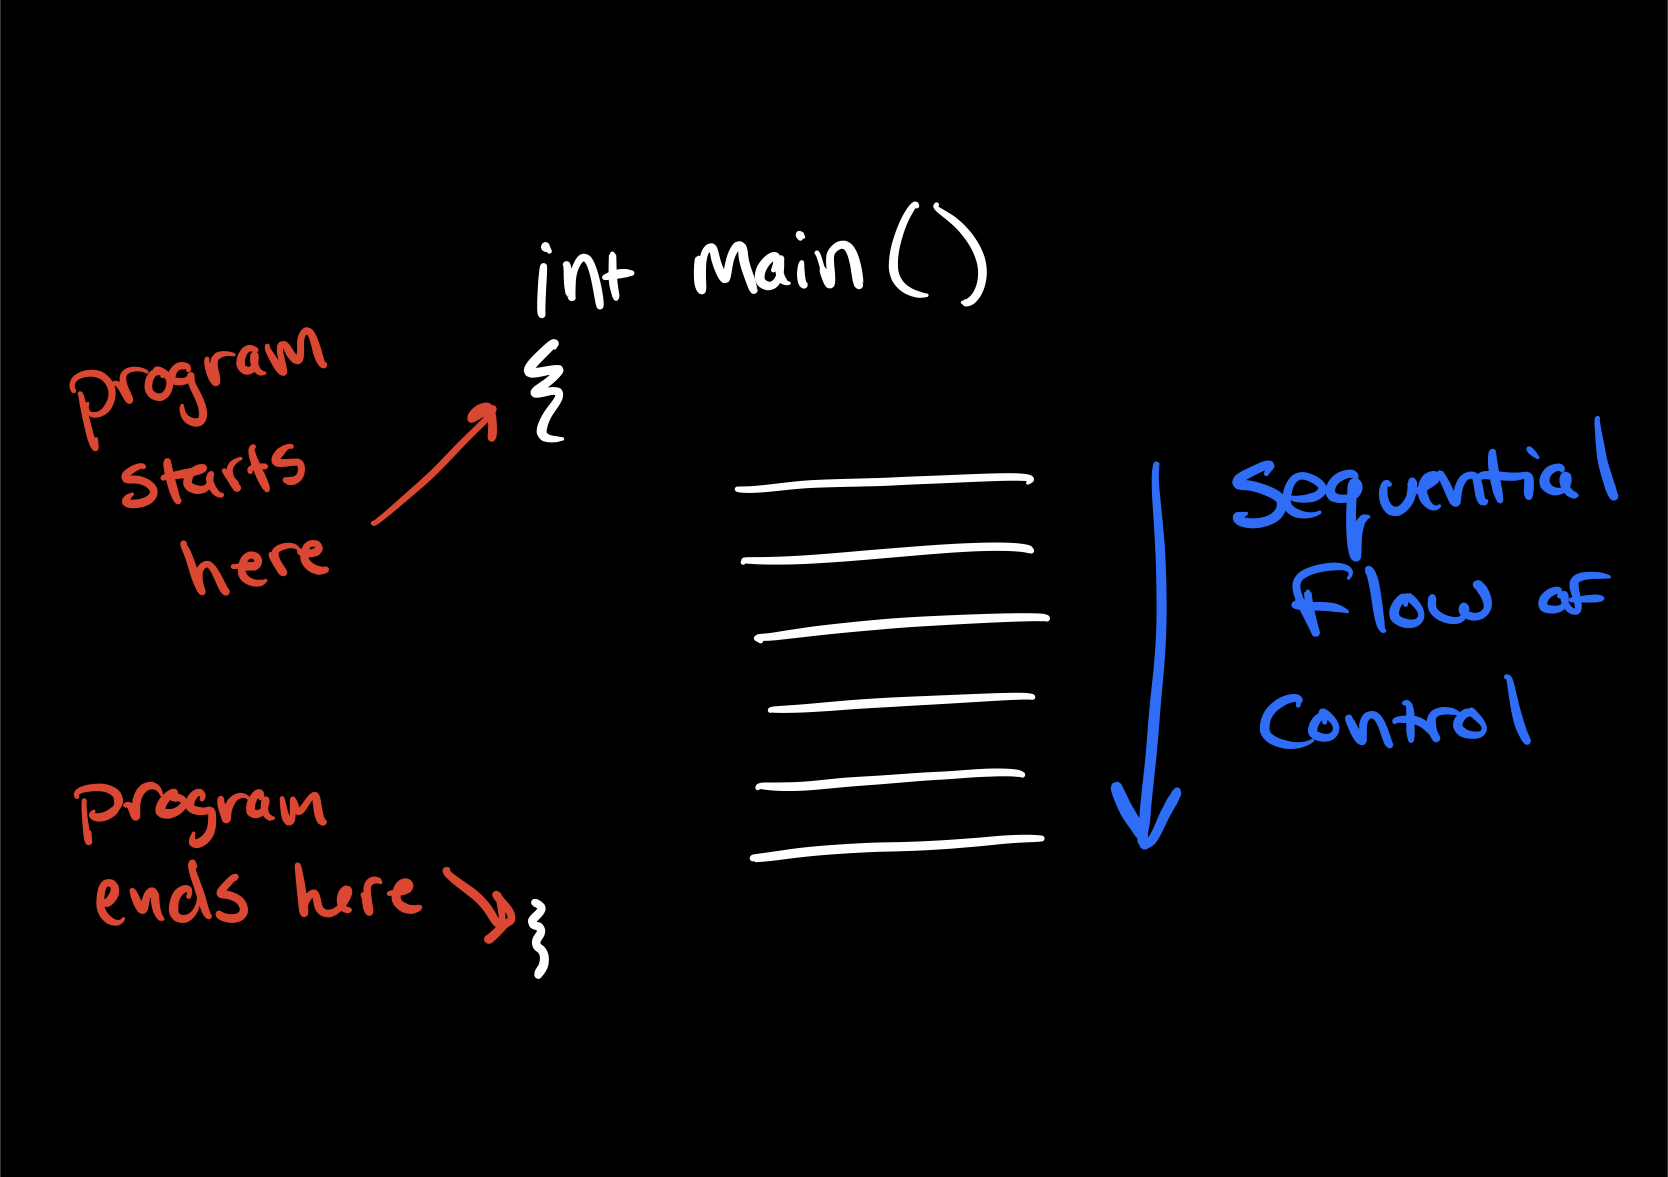 int main()
{
program
starts
here
Sequential
Flow of
Control
program
ends here
}